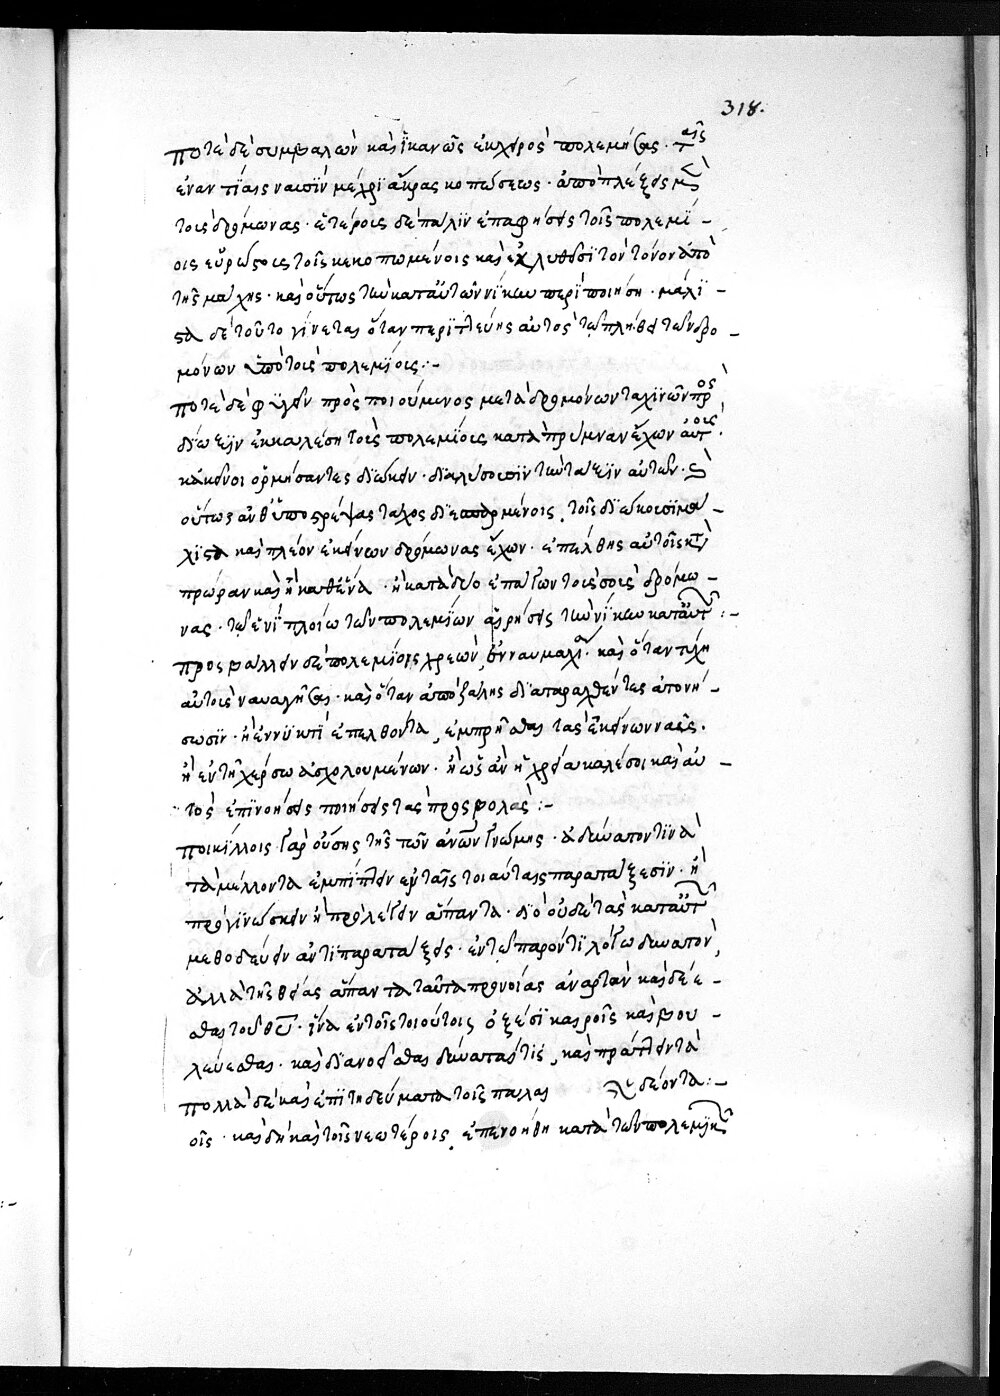 318.
ποτὲ δὲ συμβαλὼν καὶ ἱκανῶς ἐκ χειρὸς πολεμήσας. ταῖς
ἐναντίαις ναυσὶν μέχρι ἄκρας κοπώσεως. ἀποπλέξεις μὲν
τοὺς δρόμωνας. ἑτέροις δὲ πάλιν ἐπαφήσεις τοῖς πολεμί-
οις εὐρώστοις τοῖς κεκοπωμένοις καὶ ἐκλυθεῖσι τὸν τόνον ἀπὸ
τῆς μάχης. καὶ οὕτως τὴν κατ' αὐτῶν νίκην περιποιήση. μάλι-
στα δὲ τοῦτο γίνεται ὅταν περιττεύης αὐτὸς τῶ πλήθει τῶν δρο-
μόνων ὑπὸ τοὺς πολεμίοις:-
ποτὲ δὲ φυγεῖν προσποιούμενος μετὰ δρομόνων ταχινῶν πρὸς
δίωξιν ἐκκαλέση τοὺς πολεμίοις κατὰ πρύμναν ἔχων αὐτοὺς.
κἀκεῖνοι ὁρμήσαντες διώκειν. διαλύσουσιν τὴν τάξιν αὐτῶν. καὶ
οὕτως ἀνθυποστρέψας τάχος διεσπαρμένοις, τοῖς διώκουσι μά-
χιστα καὶ πλέον ἐκείνων δρόμωνας ἔχων. ἐπέλθης αὐτοῖς κατὰ
πρώραν καὶ ἢ καθ' ἕνα. ἢ κατὰ δύο ἐπάγων τοὺς σοὺς δρόμω-
νας. τῶ ἑνὶ πλοίω τῶν πολεμίων αἱρήσεις τὴν νίκην κατ' αὐτῶν:-
προσβάλλειν δὲ πολεμίοις χρεὼν, ἐν ναυμαχία. καὶ ὅταν τύχη
αὐτοὺς ναυαγῆσαι. καὶ ὅταν ἀπὸ ζάλης διαταραχθέντες ἀτονή-
σωσιν. ἢ ἐν νυκτὶ ἐπελθόντα, ἐμπρῆσαι τὰς ἐκείνων ναῦς.
ἢ ἐν τῆ χέρσω ἀσχολουμένων. ἢ ὡς ἂν ἡ χρεία καλέσοι καὶ αὐ-
τὸς ἐπινοήσεις ποιήσεις τὰς προσβολάς:-
ποικίλλοις γὰρ οὔσης τῆς τῶν ἀνων γνώμης. ἀδύνατόν τινα
τὰ μέλλοντα ἐμπίπτειν ἐν ταῖς τοιαύταις παρατάξεσιν. ἢ
προγινώσκειν ἢ προλέγειν ἅπαντα. διὸ οὐδὲ τὰς κατ' αὐτῶν
μεθοδεύειν ἀντιπαρατάξεις. ἐν τῶ παρόντι λόγω δυνατὸν,
ἀλλὰ τῆς θείας ἅπαντα ταῦτα προνοίας ἀναρτᾶν καὶ δέε-
σθαι τοῦ θυ. ἵνα ἐν τοῖς τοιούτοις ὀξέσι καιροῖς καὶ βου-
λεύεσθαι. καὶ διανοεῖσθαι δύναταί τις, καὶ πράττειν τὰ
δέοντα:-
πολλὰ δὲ καὶ ἐπιτηδεύματα τοῖς παλαι
οῖς. καὶ δὴ καὶ τοῖς νεωτέροις, ἐπενοήθη κατὰ τῶν πολεμικῶν